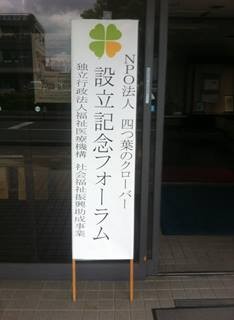 NPO法人 四つ葉のクローバー
設立記念フォーラム
独立行政法人福祉医療機構 社会福祉振興助成事業